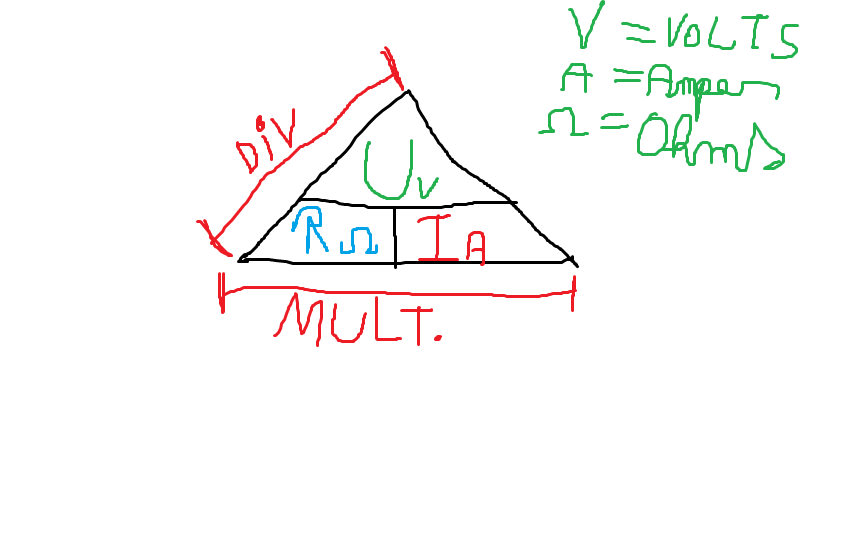 V = VOLTS
A = Amper
Ω = OhmS
DiV
U V
R Ω I A
MULT.